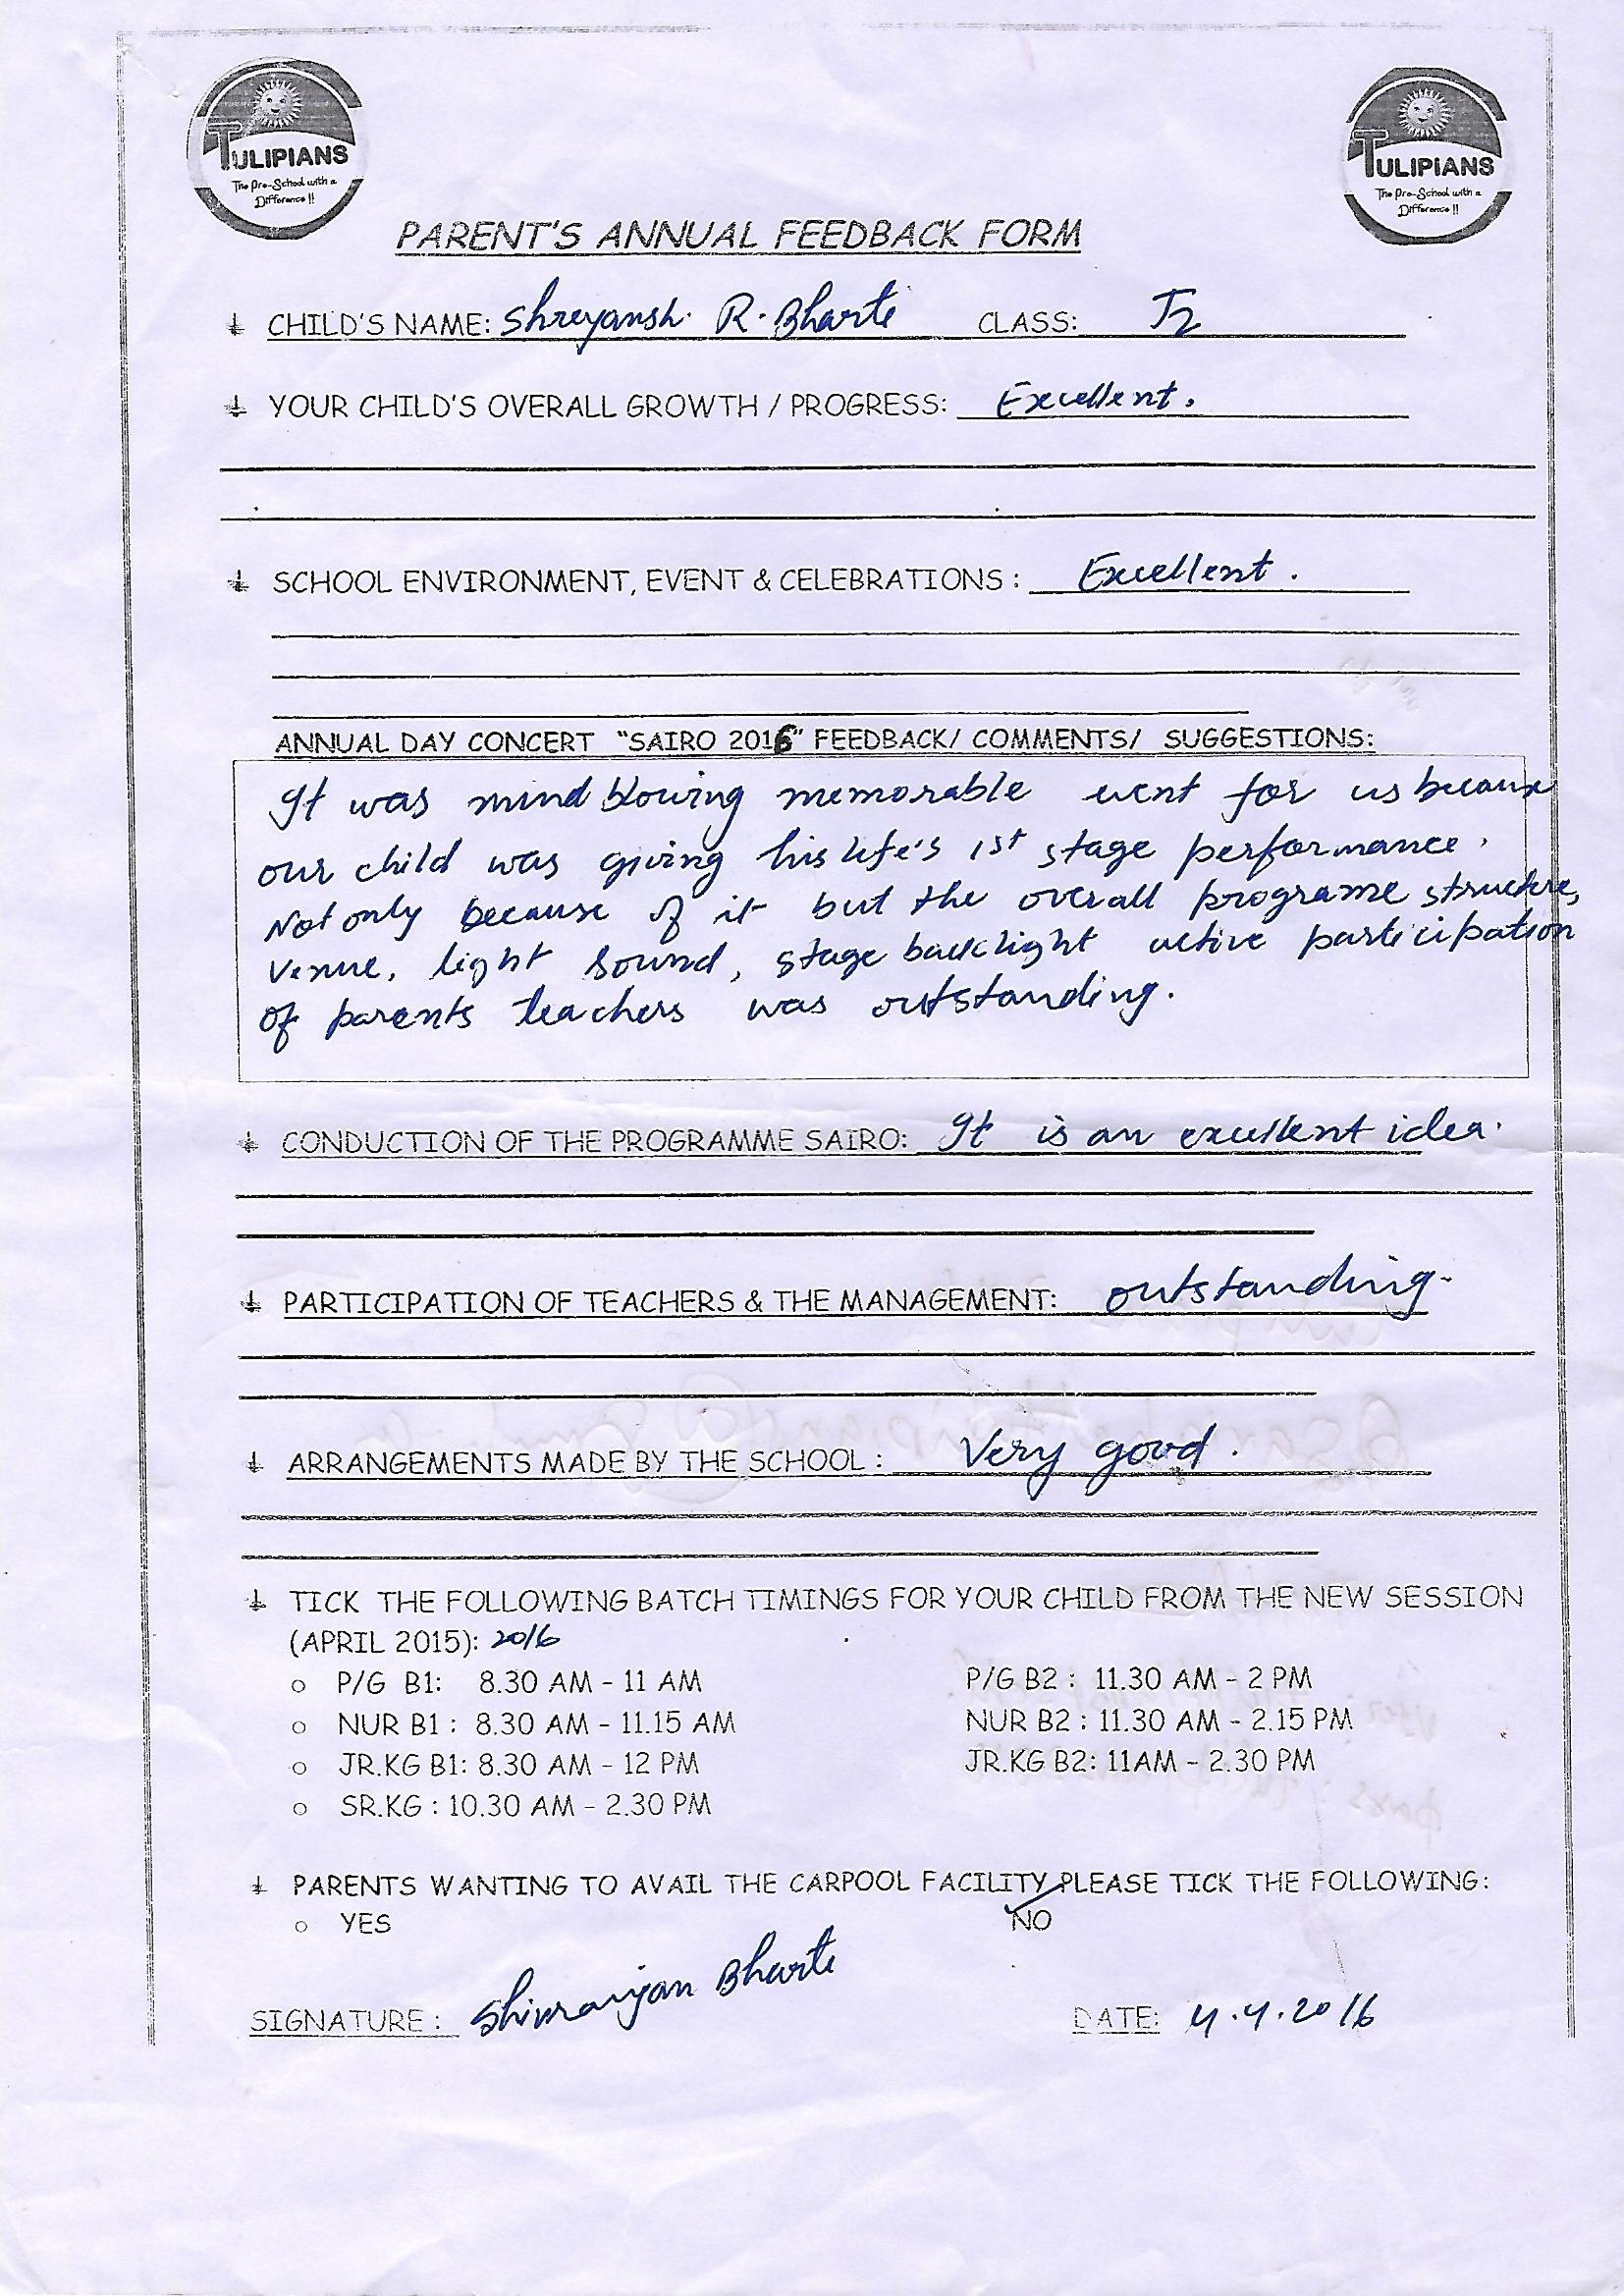 TULIPIANS
The Pre-School with a
Difference !!
TULIPIANS
The Pre-School with a
Difference !!
PARENT'S ANNUAL FEEDBACK FORM
CHILD'S NAME: Shreyansh. R. Bharti CLASS: J2
YOUR CHILD'S OVERALL GROWTH / PROGRESS: Excellent.
SCHOOL ENVIRONMENT, EVENT & CELEBRATIONS : Excellent.
ANNUAL DAY CONCERT "SAIRO 2016" FEEDBACK/ COMMENTS/ SUGGESTIONS:
It was mind blowing memorable event for us because
our child was giving his life's 1st stage performance.
Not only because of it but the overall programe structure,
Venue, light sound, stage backlight active participation
of parents teachers was outstanding.
CONDUCTION OF THE PROGRAMME SAIRO: It is an excellent idea.
PARTICIPATION OF TEACHERS & THE MANAGEMENT: outstanding.
ARRANGEMENTS MADE BY THE SCHOOL : Very good.
TICK THE FOLLOWING BATCH TIMINGS FOR YOUR CHILD FROM THE NEW SESSION
(APRIL 2015): 2016
P/G B1: 8.30 AM - 11 AM P/G B2 : 11.30 AM - 2 PM
NUR B1 : 8.30 AM - 11.15 AM NUR B2 : 11.30 AM - 2.15 PM
JR.KG B1: 8.30 AM - 12 PM JR.KG B2: 11AM - 2.30 PM
SR.KG : 10.30 AM - 2.30 PM
PARENTS WANTING TO AVAIL THE CARPOOL FACILITY PLEASE TICK THE FOLLOWING:
YES NO
SIGNATURE : Shivranjan Bharti DATE: 4.4.2016